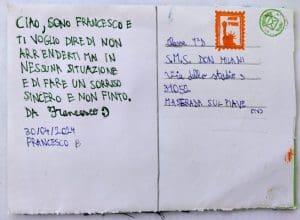 CIAO, SONO FRANCESCO E
TI VOGLIO DIRE DI NON
ARRENDERTI MAI IN
NESSUNA SITUAZIONE
E DI FARE UN SORRISO
SINCERO E NON FINTO.
DA Francesco
30/04/2024
FRANCESCO B
Classe 1°D
S.M.S. DON MILANI
Via dello studio 3
31052
MASERADA SUL PIAVE
(TV)